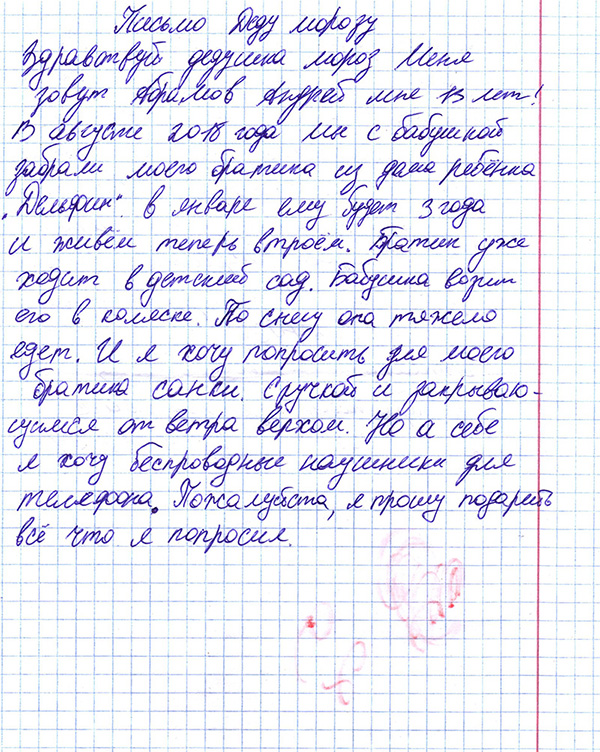 Письмо Деду морозу
Здравствуй дедушка мороз Меня
зовут Абрамов Андрей мне 13 лет!
В августе 2018 года мы с бабушкой
забрали моего братика из дома ребёнка
„Дельфин“. в январе ему будет 3 года
и живём теперь втроём. Братик уже
ходит в детский сад. Бабушка возит
его в коляске. По снегу она тяжело
едет. И я хочу попросить для моего
братика санки. с ручкой и закрываю-
щимся от ветра верхом. Но а себе
я хочу беспроводные наушники для
телефона. Пожалуйста, я прошу подарить
всё что я попросил.